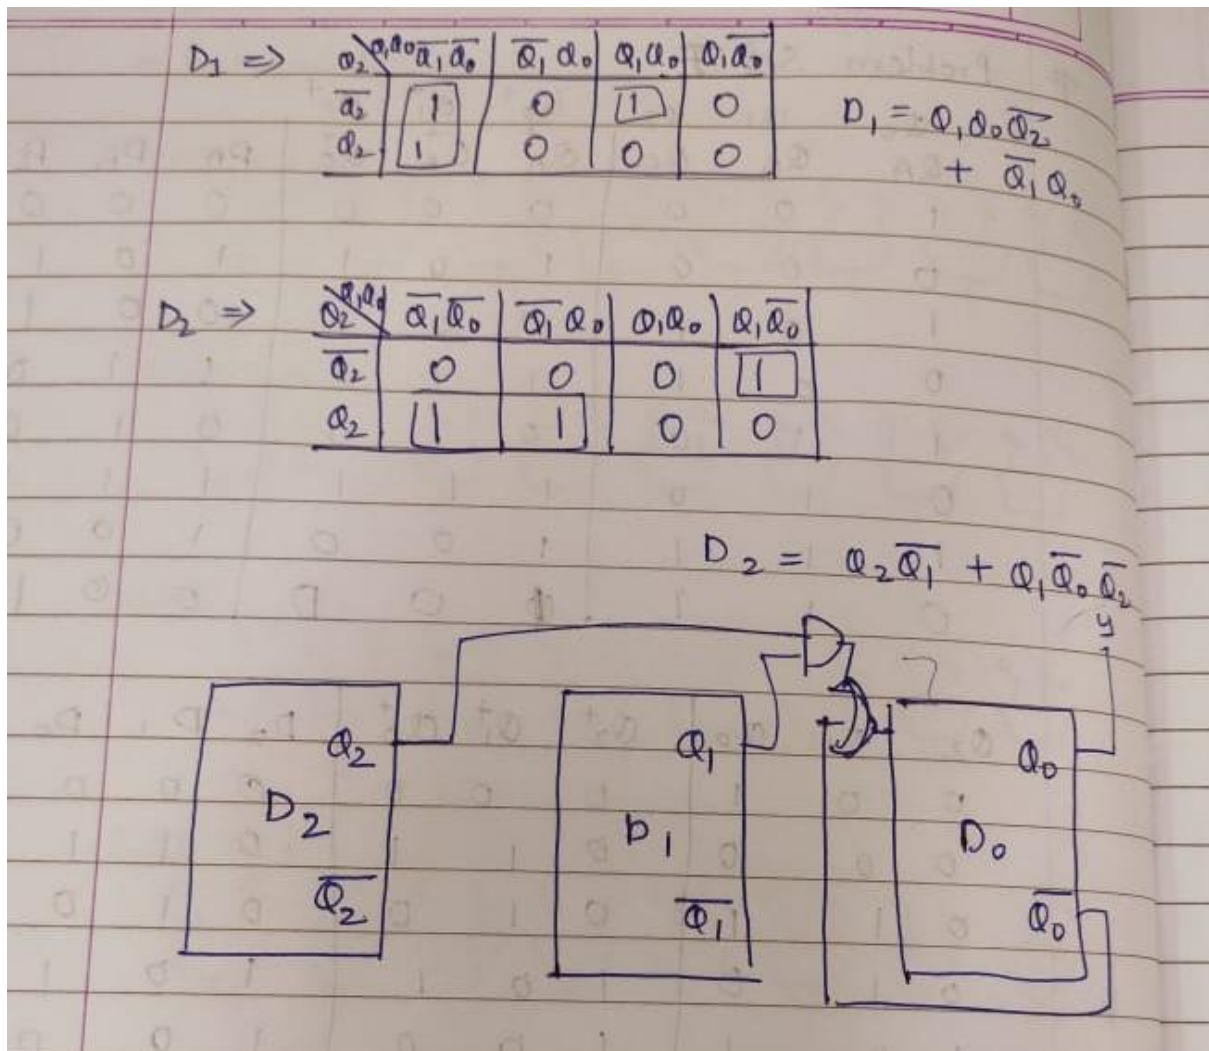 D₁ ⇒ Q₂ Q₁Q₀ Q̅₁Q̅₀ Q̅₁Q₀ Q₁Q₀ Q₁Q̅₀
Q̅₂ 1 0 1 0
Q₂ 1 0 0 0
D₁ = Q₁Q₀Q̅₂
+ Q̅₁Q₀
D₂ ⇒ Q₂ Q₁Q₀ Q̅₁Q̅₀ Q̅₁Q₀ Q₁Q₀ Q₁Q̅₀
Q̅₂ 0 0 0 1
Q₂ 1 1 0 0
D₂ = Q₂Q̅₁ + Q₁Q̅₀Q̅₂
y
Q₂ Q₁ Q₀
D₂ D₁ D₀
Q̅₂ Q̅₁ Q̅₀